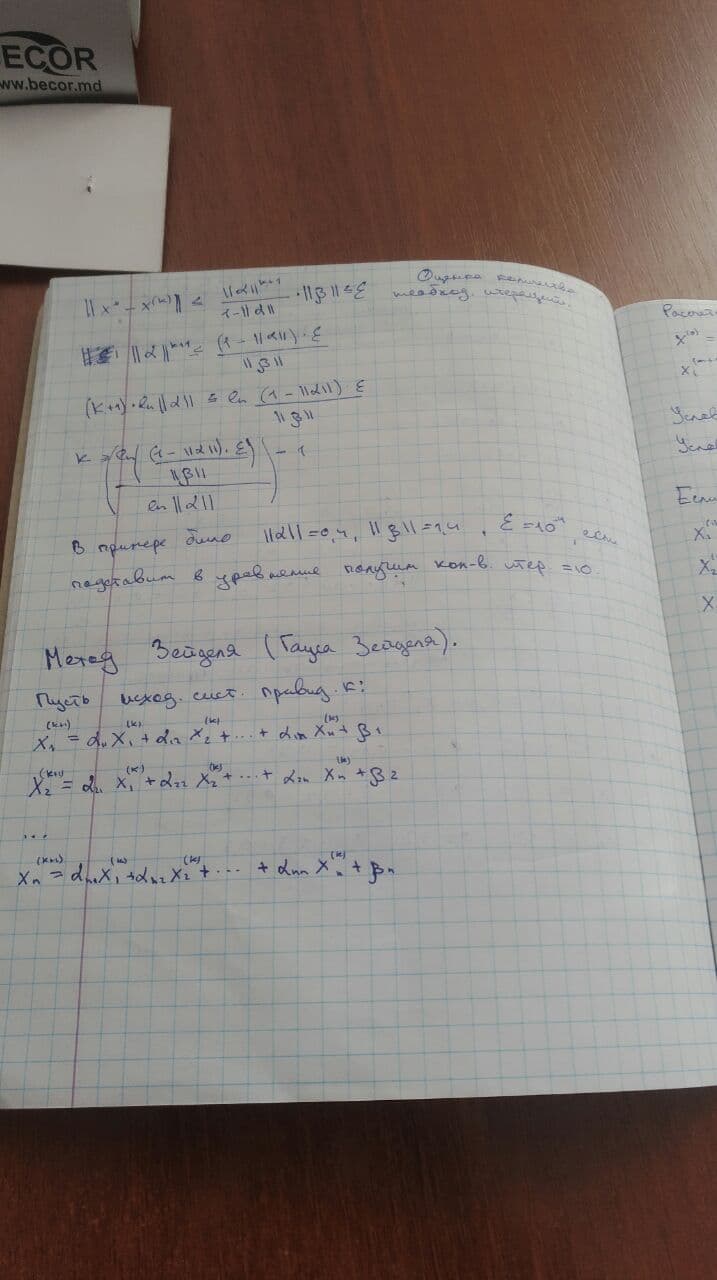 BECOR
www.becor.md
Оценка количества
необход. итераций.
||x* - x^(k)|| ≤ ||α||^(k+1) / (1-||α||) · ||β|| ≤ ε
||α||^(k+1) ≤ (1 - ||α||) · ε / ||β||
(k+1) · ln||α|| ≤ ln (1 - ||α||) ε / ||β||
k ≥ (ln((1 - ||α||) · ε / ||β||) / ln||α||) - 1
В примере было ||α|| = 0,4, ||β|| = 1,4, ε = 10^-4, если
подставим в уравнение получим кол-в. итер. = 10.
Метод Зейделя (Гауса Зейделя).
Пусть исход. сист. привид. к:
x₁^(k+1) = α₁₁ x₁^(k) + α₁₂ x₂^(k) + ... + α₁ₙ xₙ^(k) + β₁
x₂^(k+1) = α₂₁ x₁^(k) + α₂₂ x₂^(k) + ... + α₂ₙ xₙ^(k) + β₂
...
xₙ^(k+1) = αₙ₁ x₁^(k) + αₙ₂ x₂^(k) + ... + αₙₙ xₙ^(k) + βₙ
x^(0) =
Если